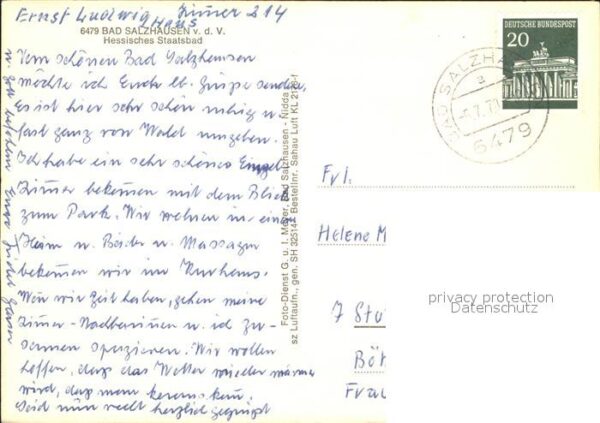 Ernst Ludwig Haus Zimer 214
6479 BAD SALZHAUSEN v. d. V.
Hessisches Staatsbad
Vom schönen Bad Salzhausen
möchte ich Euch lb. Grüße senden,
Es ist hier sehr schön ruhig u.
fast ganz von Wald umgeben.
Ich habe ein sehr schönes Einzel
Zimer bekomen mit dem Blick
zum Park. Wir wohnen in einem
Heim u. Bäder u. Massagen
bekomen wir im Kurhaus.
Wen wir Zeit haben, gehen meine
Zimer-Nachbarinen u. ich zu-
samen spazieren. Wir wollen
hoffen, daß das Wetter wieder wärmer
wird, daß man
Seid nun recht herzlich gegrüßt
u. Gott befohlen Eure
Foto-Dienst G. u. I. Meyer, Bad Salzhausen - Nidda
sz Luftaufn., gen. SH 32514 Bestellnr. Sahau Luft KL
DEUTSCHE BUNDESPOST
20
BAD SALZHAUSEN
a
6479
Frl.
Helene M
7 Stu
Böt
Frau
privacy protection
Datenschutz